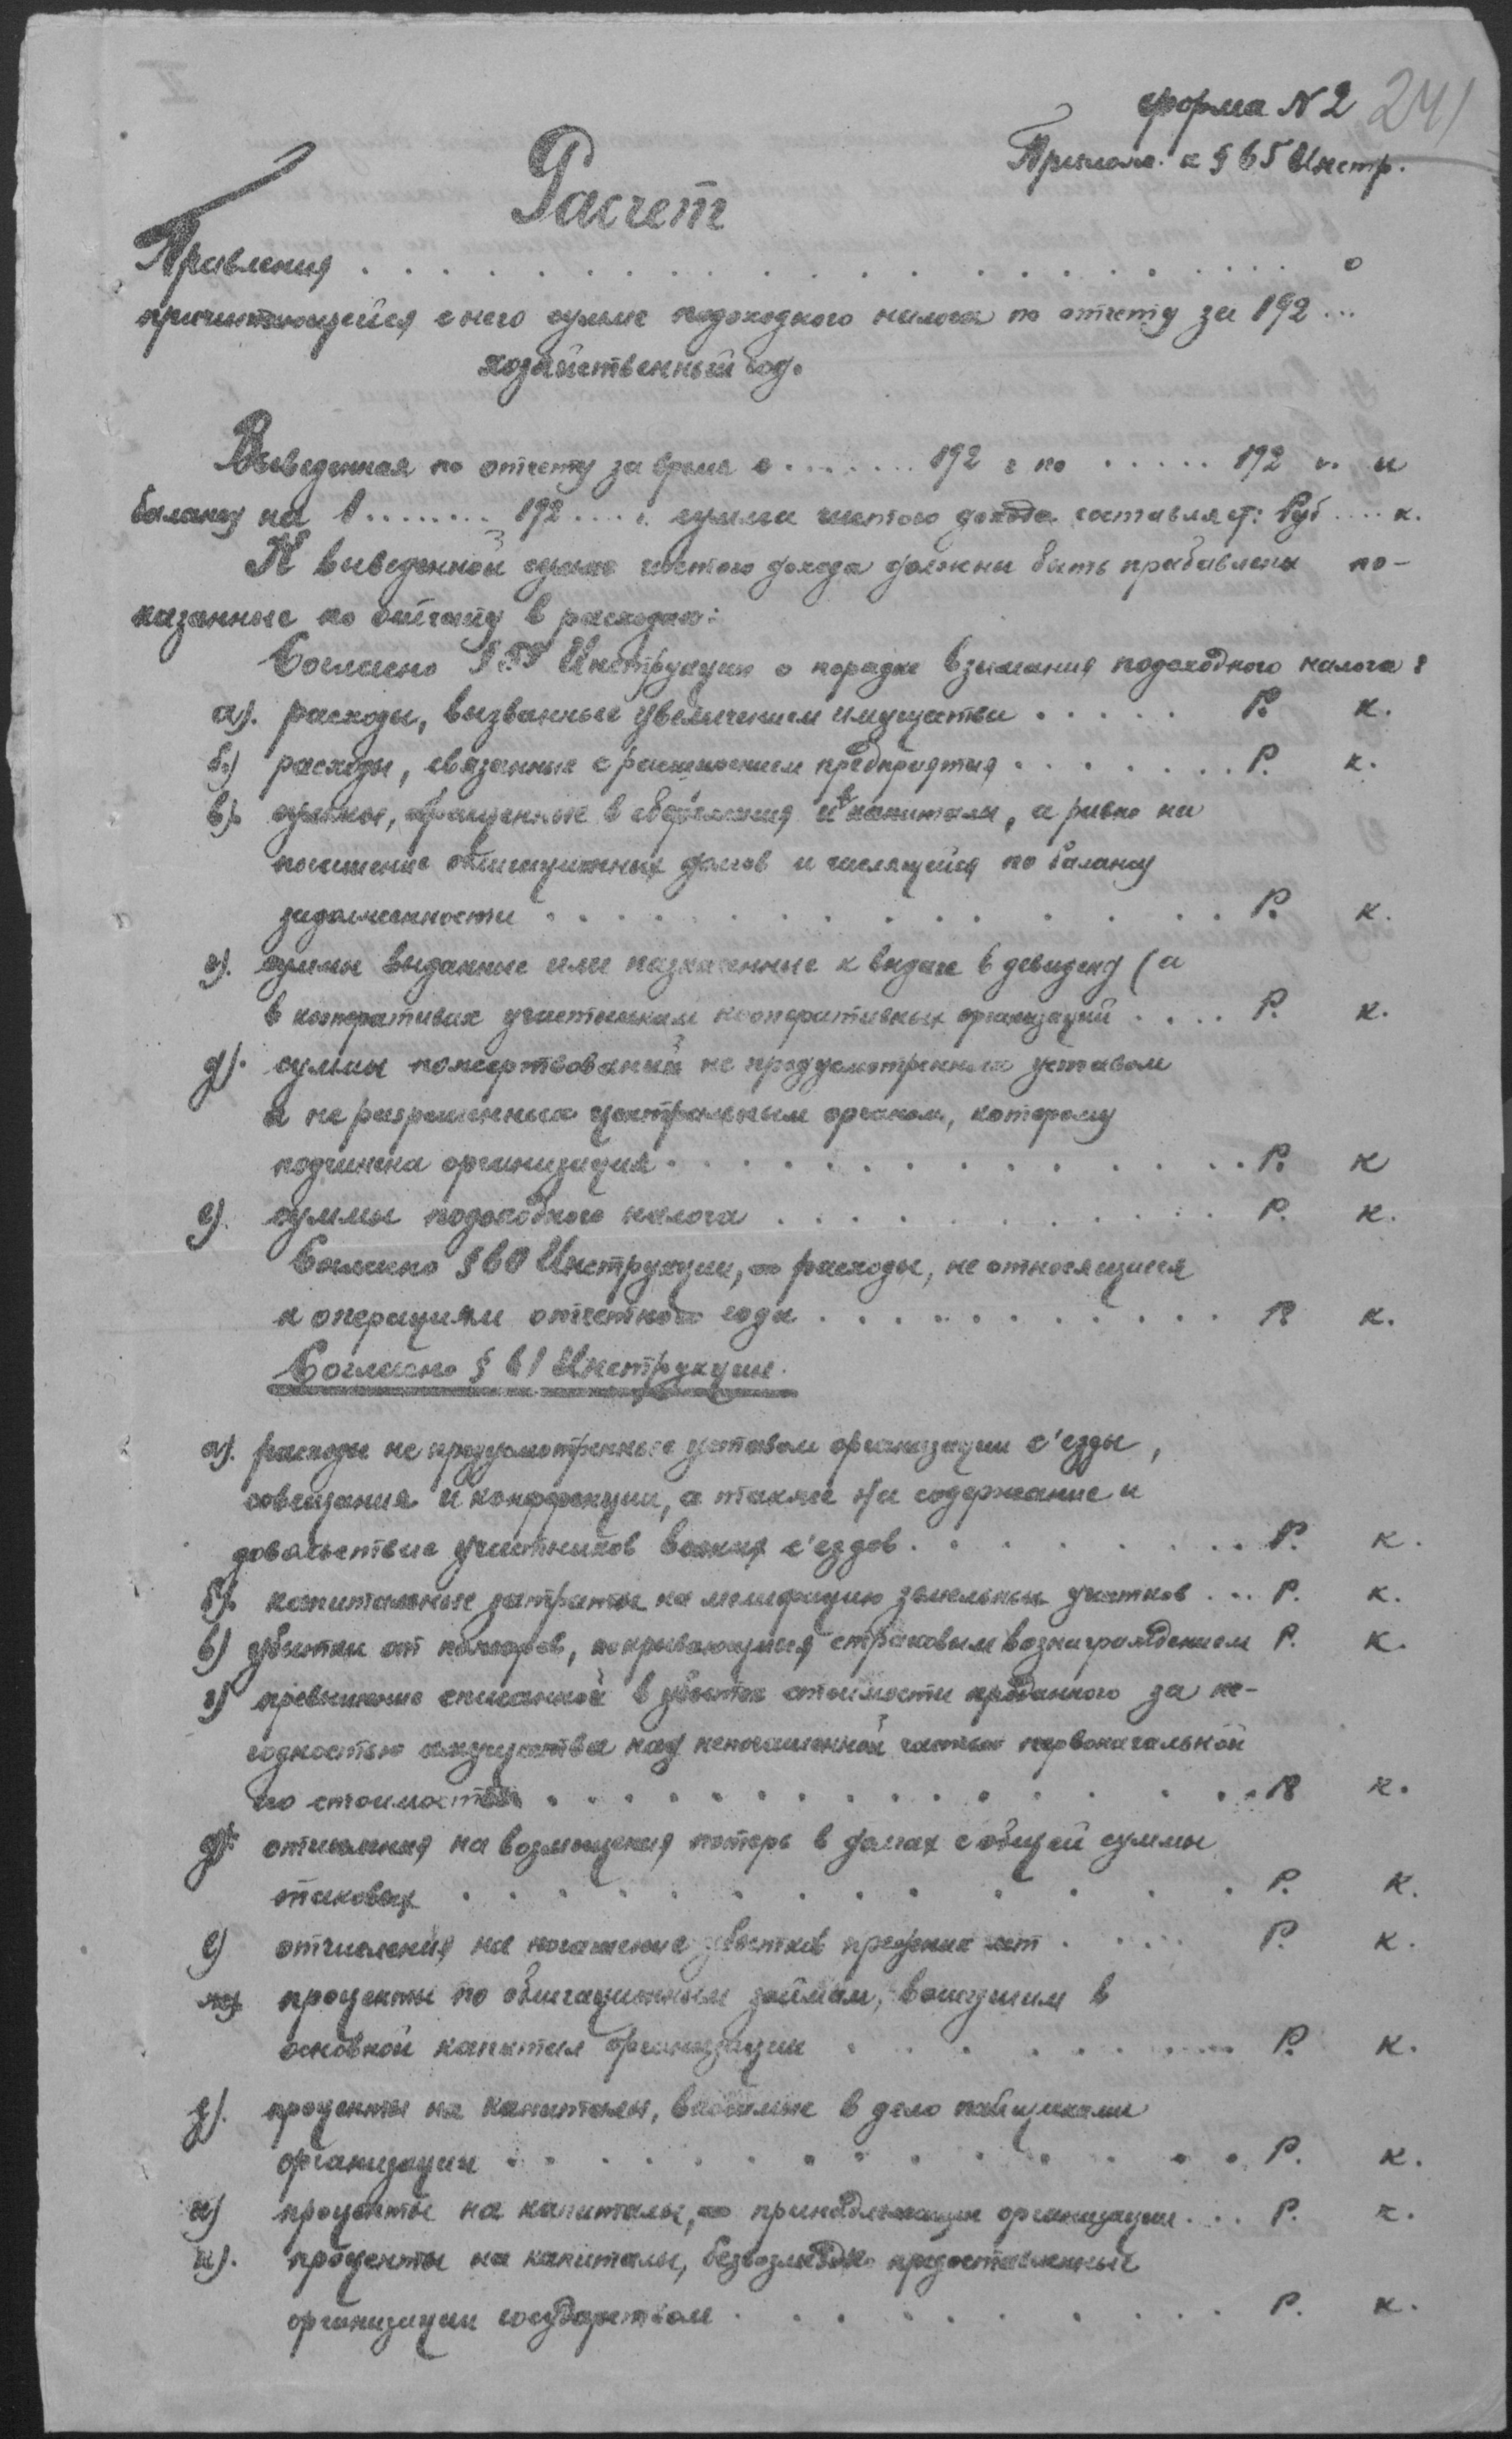 форма № 2 241
Прилож. к § 65 Инстр.
Расчет
Правления . . . . . . . . . . . . . . . . . . . . о
причитающейся с него сумме подоходного налога по отчету за 192 ...
хозяйственный год.
Выведенная по отчету за время с ........ 192 г по ...... 192 г. и
балансу на 1 ........ 192 .... г. сумма чистого дохода составляет: Руб .... к.
К выведенной сумме чистого дохода должны быть прибавлены по-
казанные по отчету в расходах:
Согласно § 59 Инструкции о порядке взымания подоходного налога:
а). расходы, вызванные увеличением имущества . . . . . Р. к.
б.) расходы, связанные с расширением предприятия . . . . . . . Р. к.
в). суммы, обращенные в сбережения и в капиталы, а равно на
погашение облигационных долгов и числящейся по балансу
задолженности . . . . . . . . . . . . . Р. к.
г). суммы выданные или назначенные к выдаче в девиденд (а
в кооперативах участникам кооперативных организаций . . . . Р. к.
д). суммы пожертвований не предусмотренных уставом
и не разрешенных центральным органом, которому
подчинена организация . . . . . . . . . . . . . Р. к
е). суммы подоходного налога . . . . . . . . . . . Р. к.
Согласно § 60 Инструкции, расходы, не относящиеся
к операциям отчетного года . . . . . . . . . . . Р. к.
Согласно § 61 Инструкции.
а). расходы не предусмотренные уставом организации с'езды,
совещания и конференции, а также на содержание и
довольствие участников всяких с'ездов . . . . . . . . . Р. к.
б). капитальные затраты на мелиорацию земельных участков . . . Р. к.
в) убытки от пожаров, покрывающиеся страховым вознаграждением Р. к.
г) превышение списанной в убыток стоимости проданного за не-
годностью имущества над непогашенной частью первоначальной
его стоимости . . . . . . . . . . . . . . . Р. к.
д). отчисления на возмещения потерь в долгах с общей суммы
таковых . . . . . . . . . . . . . . Р. к.
е) отчисления на погашение убытков прежних лет . . . . Р. к.
ж) проценты по облигационным займам, вошедшим в
основной капитал организации . . . . . . . . . . Р. к.
з). проценты на капиталы, вносимые в дело пайщиками
организации . . . . . . . . . . . . . . Р. к.
и) проценты на капиталы, принадлежащие организации . . . Р. к.
к). проценты на капиталы, безвозмездно предоставленные
организации государством . . . . . . . . . . Р. к.